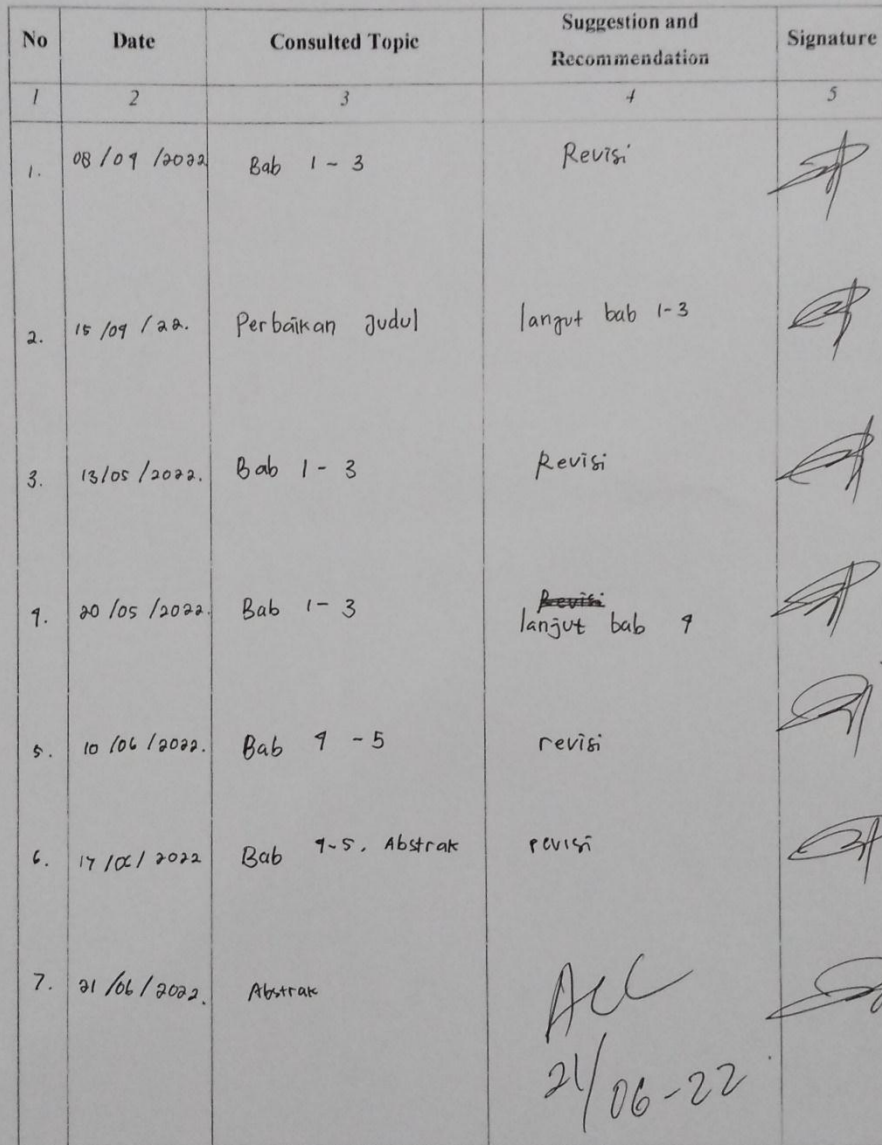 No Date Consulted Topic Suggestion and Recommendation Signature
1 2 3 4 5
1. 08/04/2022 Bab 1-3 Revisi
2. 15/04/22. Perbaikan Judul lanjut bab 1-3
3. 13/05/2022. Bab 1-3 Revisi
4. 20/05/2022. Bab 1-3 Revisi
lanjut bab 4
5. 10/06/2022. Bab 4-5 revisi
6. 17/06/2022 Bab 4-5, Abstrak revisi
7. 21/06/2022. Abstrak Acc
21/06-22